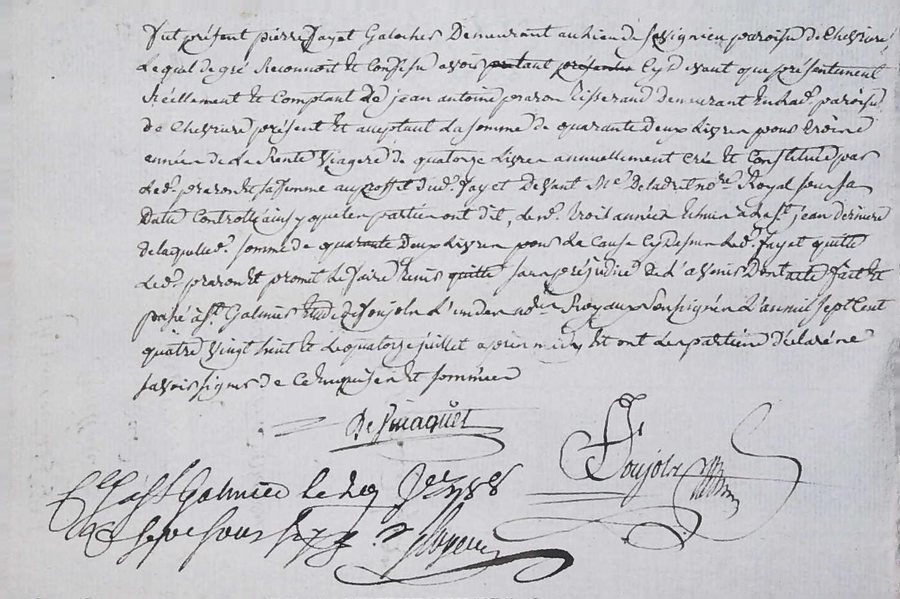 Fut présent pierre fayet Galocher Demeurant au lieu de savignieu paroisse de Chevrière
Lequel de gré Reconnoit et Confesse avoir cy devant que présentement
Réellement et Comptant De jean antoine prazon Tisserand demeurant paroisse
de Chevrière présent et acceptant La somme de quarante deux Livres pour trois
années de La Rente viagere de quatorze Livres annuellement crée et Constituée par
Led. prazon et sa femme au proffit dud. fayet Devant Me Royal sous sa
Datte Controllé ainsy que les parties ont dit, lesd. trois années a la St jean derniere
de laquelle somme de quarante Deux Livres pour La Cause cy dessus Led. fayet quitte
Led. prazon et promet Le faire tenir quitte sans préjudice de L'avenir Dont acte fait et
passé a St Galmier Etude de Poujolx L'un des nores Royaux Soussignés L'an mil sept Cent
quatre vingt huit et Le quatorze juillet apres midy et ont Les parties déclaré ne
savoir signer de Ce Enquises et sommées
Poujolx
a St Galmier le juet 1788